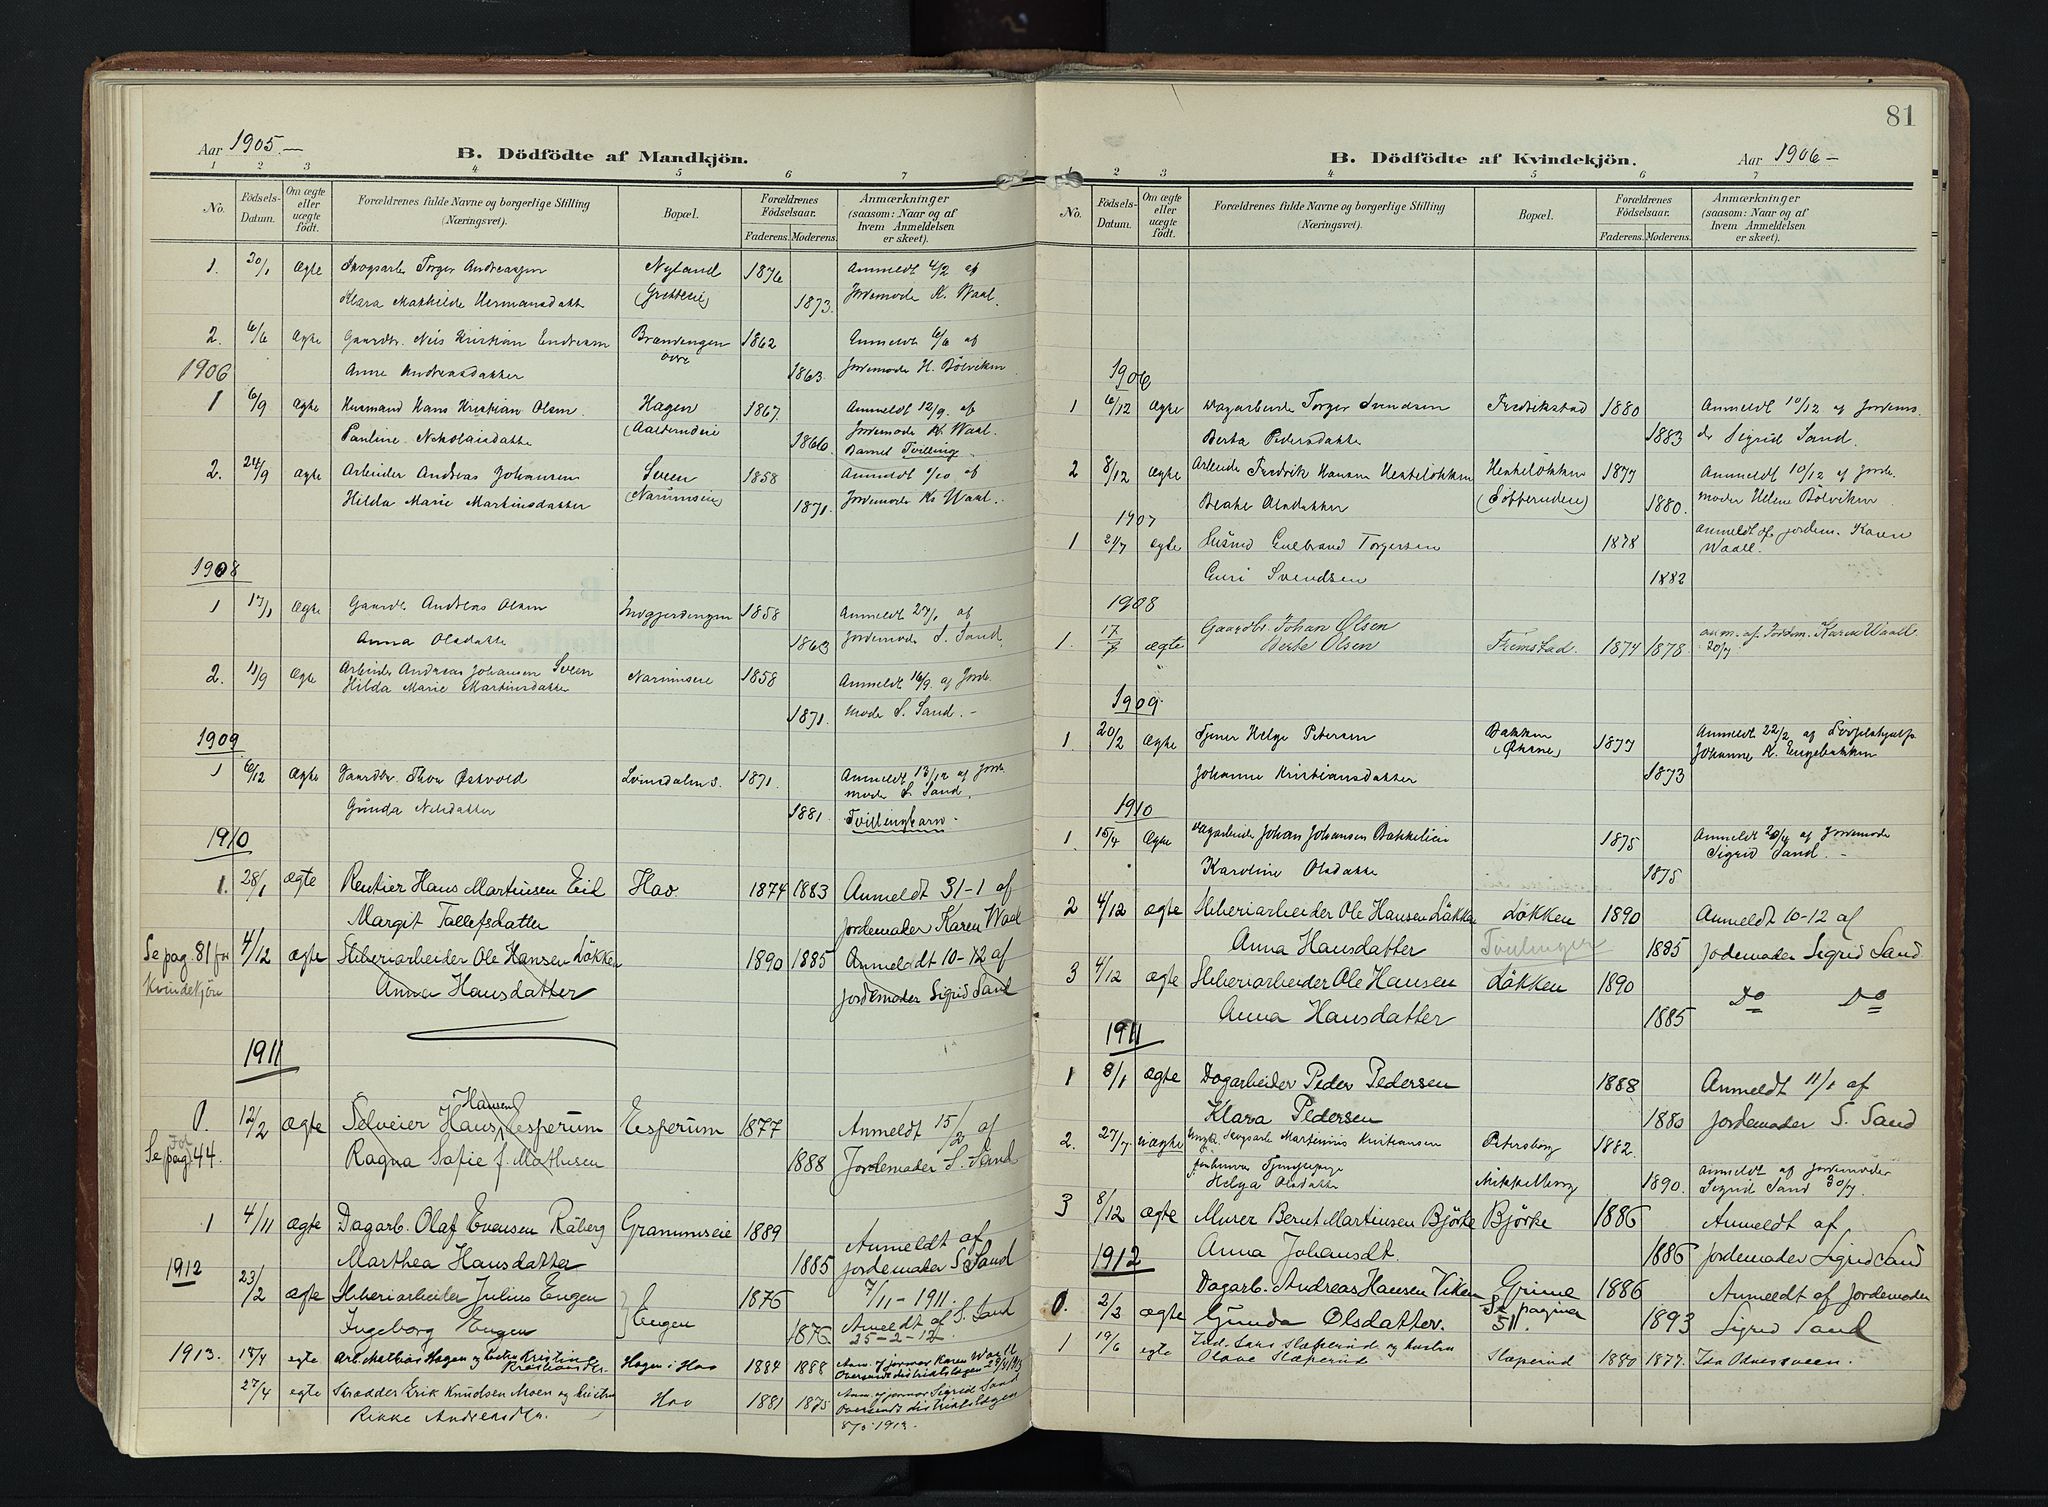 Aar 1905.—
B. Dödfödte af Mandkjön.
1 2 3 4 5 6 7
No. Födsels-Datum. Om ægte eller uægte födt. Forældrenes fulde Navne og borgerlige Stilling (Næringsvei). Bopæl. Forældrenes Födselsaar. Faderens. Moderens. Anmærkninger (saasom: Naar og af hvem Anmeldelsen er skeet).
1. 30/1 Ægte Skogsarb. Torger Andreassen Nyland 1876 Anmeldt 4/2 af
Klara Mathilde Hermansdatter 1873. Jordemode K. Waal.
2. 6/6 Ægte Gaardbr. Nils Kristian Endresen Brændengen 1862 Anmeldt 6/6 af
övre
1906 Anne Andreasdatter 1863. Jordemode H. Bölviken
1 6/9 Ægte Husmand Hans Kristian Olsen. Hagen 1867 Anmeldt 12/9. af
Pauline Nikolaisdatter 1866 Jordemode K. Waal.
Barnet Tvilling.
2. 24/9 Ægte Arbeider Andreas Johansen Sveen 1858 Anmeldt 1/10 af
Hilda Marie Martinsdatter (Narumseie) 1871. Jordemode K. Waal.
1908
1 17/1 Ægte Gaardb. Andreas Olsen 1858 Anmeldt 27/1 af
Anna Olsdatter 1863 Jordemode S. Sand.
2. 11/9 Ægte Arbeider Andreas Johansen Sveen Narumseie 1858 Anmeldt 16/9. af Jorde
Hilda Marie Martinsdatter
1871. mode S. Sand. -
1909
1 6/12 Ægte Gaardbr. Thor Östvold Lvinsdalen s. 1871. Anmeldt 13/12 af Jorde
mode S. Sand.
Gunda Nilsdatter 1881. Tvillingbarn.
1910
1. 28/1 ægte Rentier Hans Martinsen Eid Hov. 1874 1883 Anmeldt 31-1 af
Margit Tollefsdatter jordemoder Karen Waal
Se pag. 81 for 4/12 ægte Sliberiarbeider Ole Hansen Løkken 1890 1885 Anmeldt 10-12 af
Kvindekjön Anna Hansdatter jordemoder Sigrid Sand
1911
Hansen
0. 12/2 ægte Selveier Hans Esperum Esperum 1877 Anmeldt 15/2 af
Se Fol pag. 44. Ragna Sofie f. Mathisen 1888 Jordemoder S. Sand
1 4/11 ægte Dagarb. Olaf Evensen Råberg Grammseie 1889 Anmeldt af
Marthea Hansdatter 1885 jordemoder S. Sand
1912 7/11-1911.
23/2 ægte Sliberiarbeider Julius Engen Engen 1876 Anmeldt af S. Sand
Ingeborg Engen 1876 25-2-12.
1913. 18/4 egte Arb. Mathias Hagen og hustru Kristine Hagen i Hov 1884 1888 Anm. af jormor Karen Waall
Oversendt distriktslægen
27/4 egte Skrædder Erik Knudsen Moen og hustru Hov 1881 1875 Anm. af jormor Sigrid Sand
Rikke Andersdtr. Oversendt distriktslægen
8/5 1913.
81
B. Dödfödte af Kvindekjön.
Aar 1906-
1 2 3 4 5 6 7
No. Födsels-Datum. Om ægte eller uægte födt. Forældrenes fulde Navne og borgerlige Stilling (Næringsvei). Bopæl. Forældrenes Födselsaar. Faderens. Moderens. Anmærkninger (saasom: Naar og af hvem Anmeldelsen er skeet).
1906
1 6/12 Ægte Dagarbeide Torger Svendsen Fredrikstad 1880 Anmeldt 10/12 af Jordemo-
Berta Pedersdatter 1883 der Sigrid Sand.
2 8/12 Ægte Arbeide Fredrik Hansen Henkeløkken Henkeløkken 1877 Anmeldt 10/12 af Jorde
Beate Olsdatter (Söfferudeie) 1880. moder Helene Bölviken
1907
1 21/7 ægte Husmd Gulbrand Torgersen 1878 Anmeldt af jordem. Karen
Waall.
Guri Svendsen 1882
1908
1. 17/7 ægte Gaardbr. Johan Olsen Fremstad. 1874 1878 anm. af Jordem. Karen Waall
Berte Olsen 20/7
1909.
1. 20/2 Ægte Tjener Helge Petersen Bakken 1877 Anmeldt 22/2 af
Johanne K. Engebakken
Johanne Kristiansdatter 1873
1910
1. 15/4 Ægte Dagarbeider Johan Johansen Bakkelien 1875 Anmeldt 20/4 af Jordemoder
Sigrid Sand. -
Karoline Olsdatter 1875
2 4/12 ægte Sliberiarbeider Ole Hansen Løkken Løkken 1890 Anmeldt 10-12 af
Anna Hansdatter Tvillinger 1885 Jodemoder Sigrid Sand
3 4/12 ægte Sliberiarbeider Ole Hansen Løkken 1890 Do Do
Anna Hansdatter 1885
1911
1 8/1 ægte Dagarbeider Peder Pedersen 1888 Anmeldt 11/1 af
Klara Pedersen 1880 jordemoder S. Sand
2. 27/7 uægte Ungk. Skogsarb. Martinius Kristiansen Petersborg 1882.
Tjenestepige
Helga Olsdatter Mikkelborg 1890. Anmeldt af jordemoder
Sigrid Sand 30/7.
3 8/12 ægte Murer Bernt Martinsen Björke Björke 1886 Anmeldt af
Anna Johansdt. 1886 Jordemoder Sigrid Sand
1912
0. 2/2 ægte Dagarb. Andreas Hansen Viken Grime 1886 Anmeldt af Jordemoder
Gunda Olsdatter. Se pagina 51. 1893 Sigrid Sand
1 19/6 egte Ind. Lars Slæperud og hustru Slæperud 1880 1877. Ida Odnessveen.
Olave Slæperud